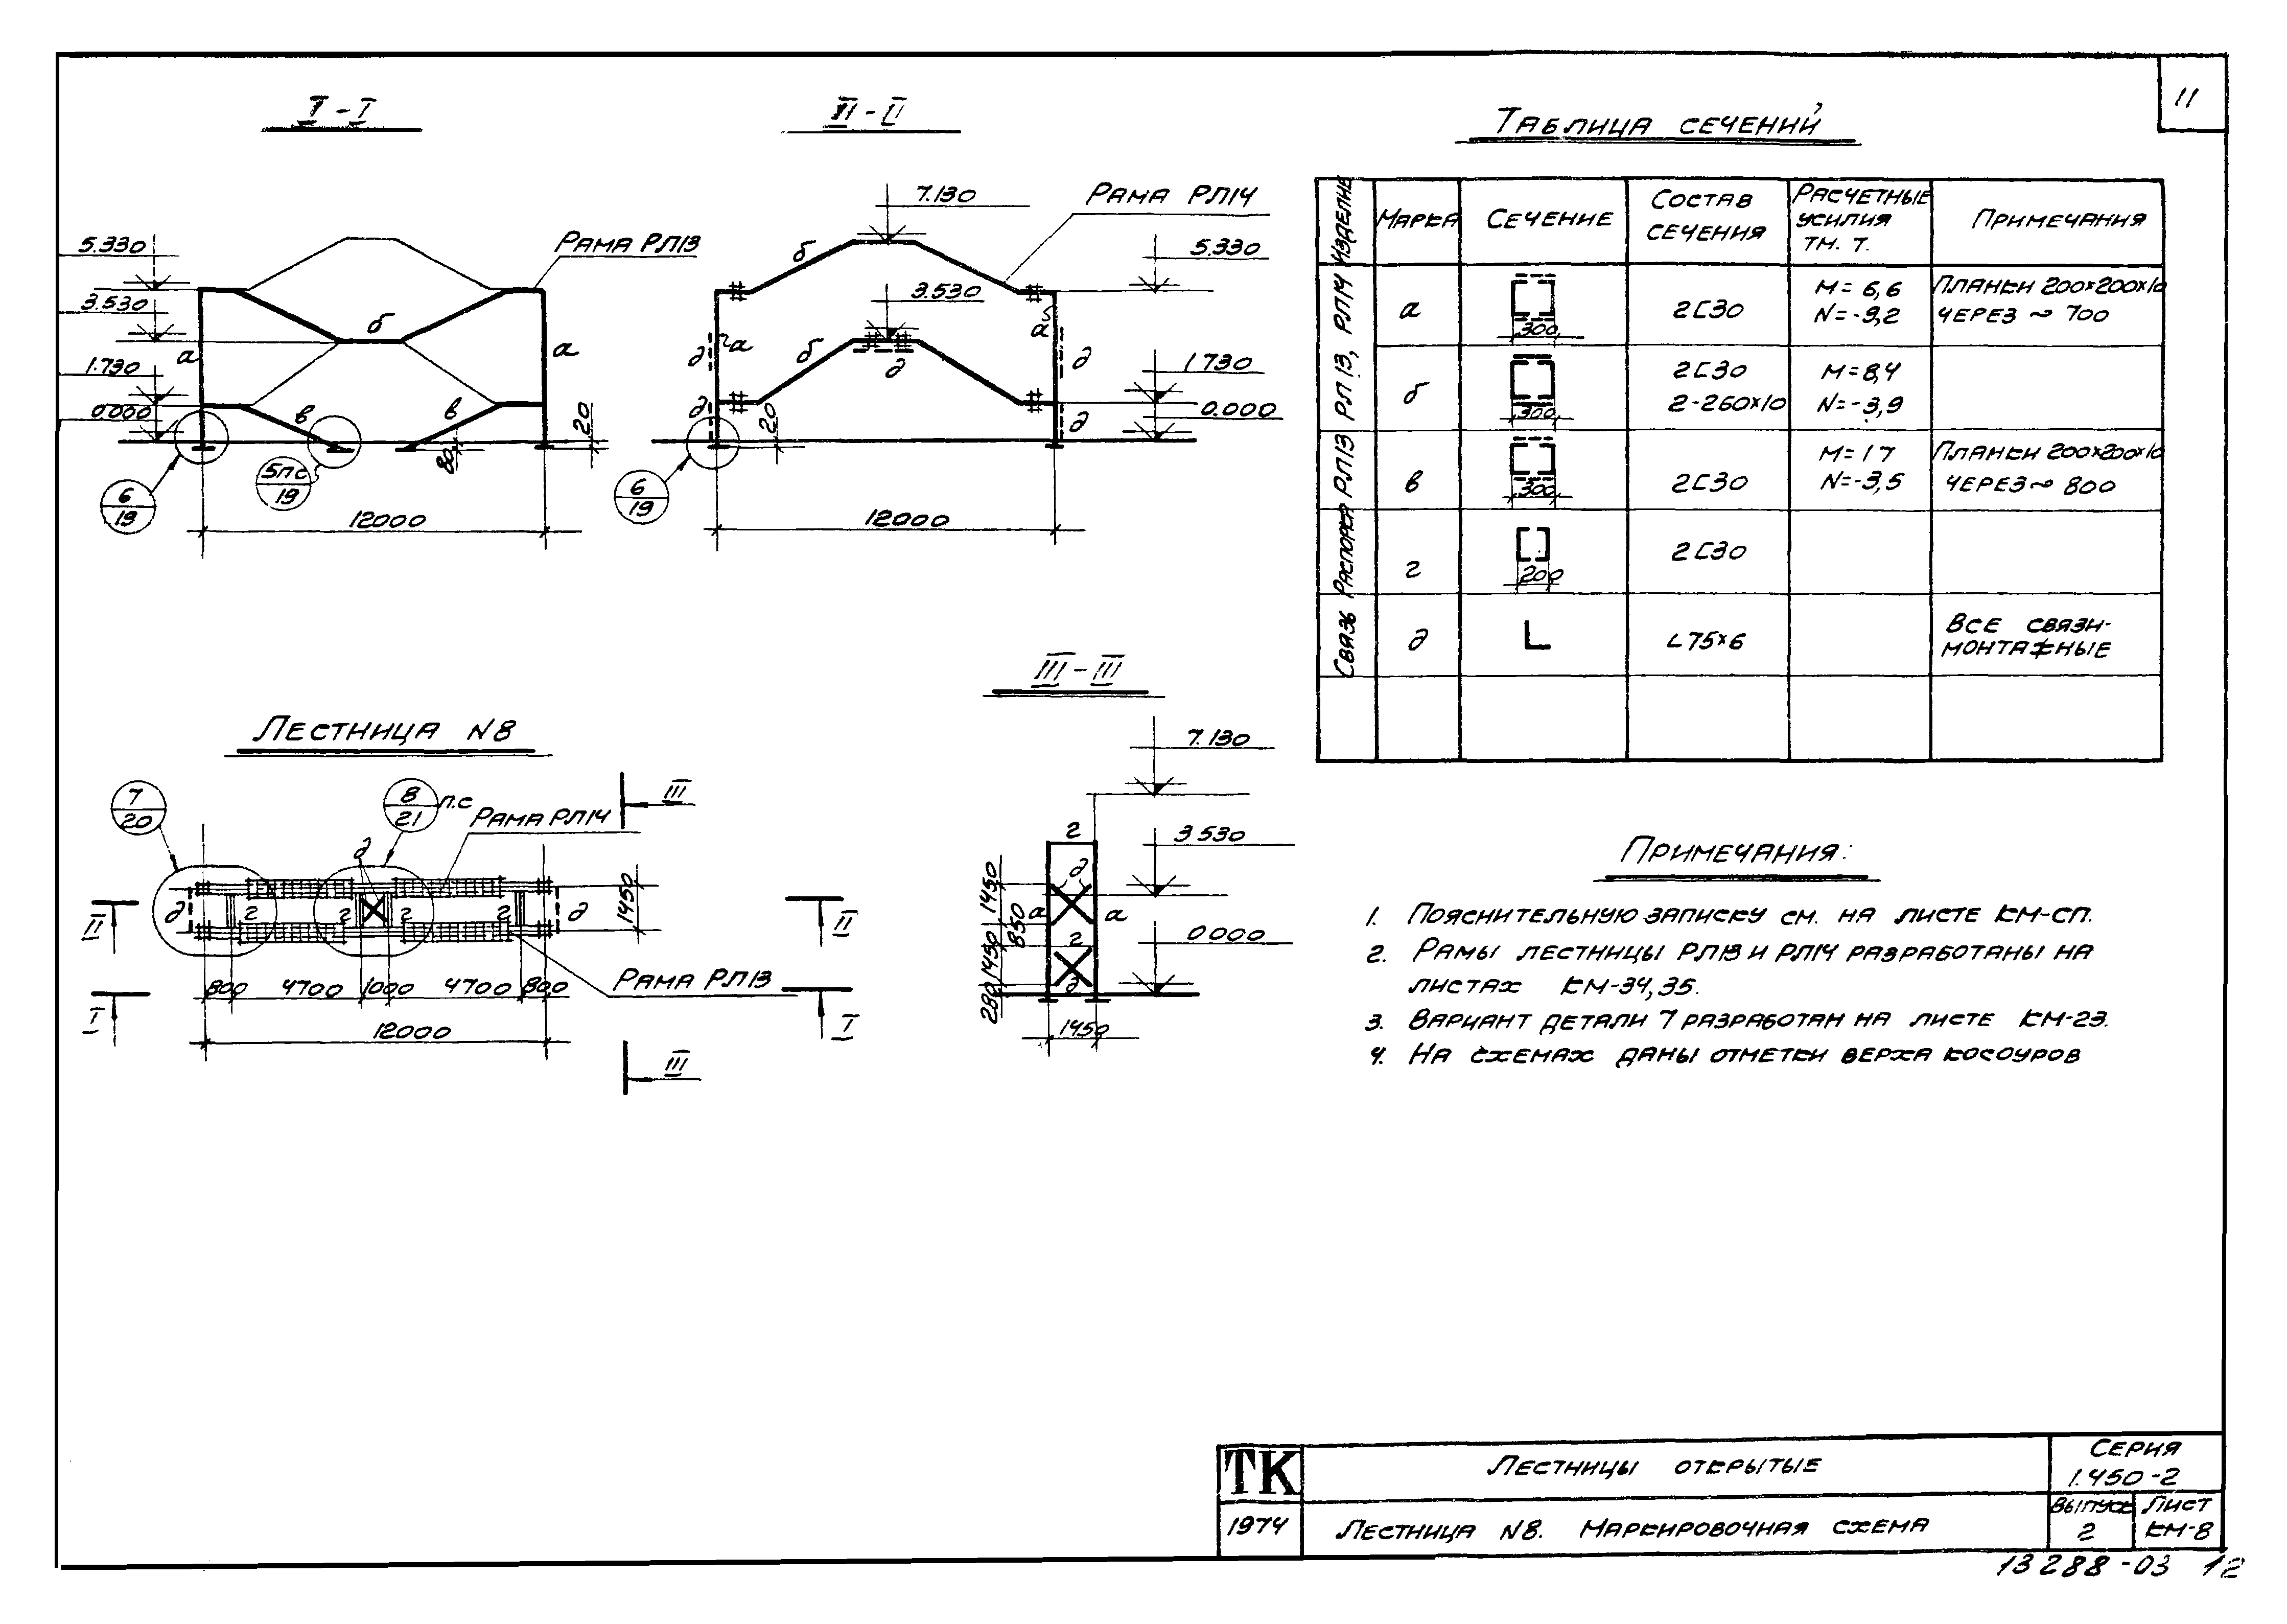 11
I-I
5.330
3.530
1.730
0.000
Рама РЛ13
а
б
а
в
в
20
80
6
19
5пс
19
12000
II-II
7.130
Рама РЛ14
5.330
3.530
1.730
0.000
б
б
а
а
д
д
д
д
д
20
6
19
12000
Таблица сечений
Изделие
Марка
Сечение
Состав сечения
Расчетные усилия тм. т.
Примечания
РЛ13, РЛ14
а
300
2[30
M=6,6
N=-9,2
Планки 200×200×10
через ~ 700
б
300
2[30
2-260×10
M=8,4
N=-3,9
РЛ13
в
300
2[30
M=17
N=-3,5
Планки 200×200×10
через ~ 800
Распорка
г
200
2[30
Связь
д
L75×6
Все связи-
монтажные
Лестница N8
7
20
8
21
п.с
Рама РЛ14
III
д
д
г
г
г
г
д
1450
II
II
Рама РЛ13
800
4700
1000
4700
800
I
I
12000
III
III-III
7.130
3.530
0.000
г
д
а
а
г
д
1450
850
1450
280
1450
Примечания:
1. Пояснительную записку см. на листе КМ-СП.
2. Рамы лестницы РЛ13 и РЛ14 разработаны на
листах КМ-34,35.
3. Вариант детали 7 разработан на листе КМ-23.
4. На схемах даны отметки верха косоуров
ТК
1974
Лестницы открытые
Серия
1.450-2
Лестница N8. Маркировочная схема
Выпуск
2
Лист
КМ-8
13288-03 12